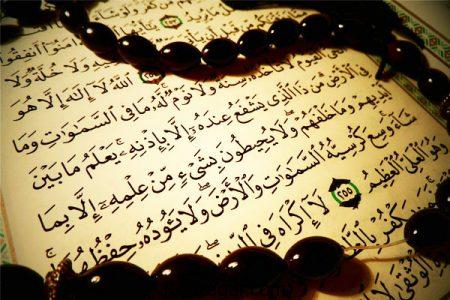 ءَامَنُوٓا۟ أَنفِقُوا۟
وَلَا خُلَّةٌ وَلَا
ٱللَّهُ لَآ إِلَٰهَ إِلَّا هُوَ
ٱلْقَيُّومُ لَا تَأْخُذُهُۥ سِنَةٌ وَلَا نَوْمٌ لَّهُۥ مَا فِى ٱلسَّمَٰوَٰتِ وَمَا
فِى ٱلْأَرْضِ مَن ذَا ٱلَّذِى يَشْفَعُ عِندَهُۥٓ إِلَّا بِإِذْنِهِۦ يَعْلَمُ مَا بَيْنَ
أَيْدِيهِمْ وَمَا خَلْفَهُمْ وَلَا يُحِيطُونَ بِشَىْءٍ مِّنْ عِلْمِهِۦٓ إِلَّا بِمَا
شَآءَ وَسِعَ كُرْسِيُّهُ ٱلسَّمَٰوَٰتِ وَٱلْأَرْضَ وَلَا يَـُٔودُهُۥ حِفْظُهُمَا
وَهُوَ ٱلْعَلِىُّ ٱلْعَظِيمُ ٢٥٥ لَآ إِكْرَاهَ فِى
يَكْفُرْ
ٱلْوُثْقَىٰ لَا